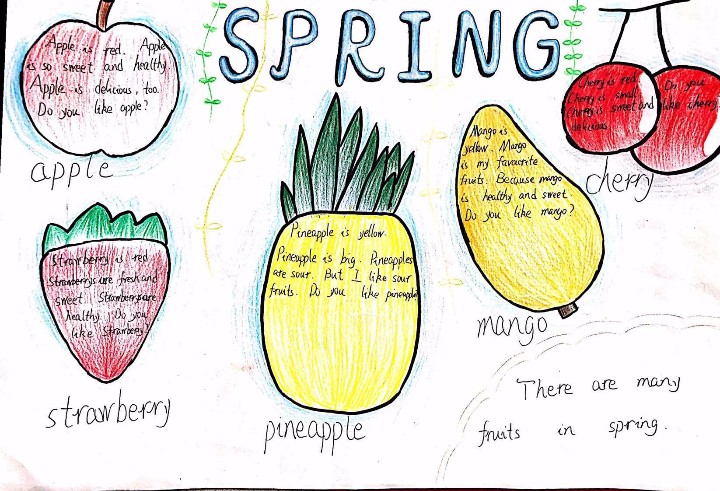 SPRING
Apple is red. Apple
is so sweet and healthy
Apple is delicious, too.
Do you like apple?
apple
Cherry is red
Cherry is small
Cherry is sweet and
delicious
Do you
like cherry
cherry
Mango is
yellow. Mango
is my favourite
fruits. Because mango
is healthy and sweet.
Do you like mango?
mango
Pineapple is yellow.
Pineapple is big. Pineapples
are sour. But I like sour
fruits. Do you like pineapple
pineapple
Strawberry is red
Strawberrys are fresh and
sweet. Strawberrys are
healthy. Do you
like Strawberry?
strawberry
There are many
fruits in spring.